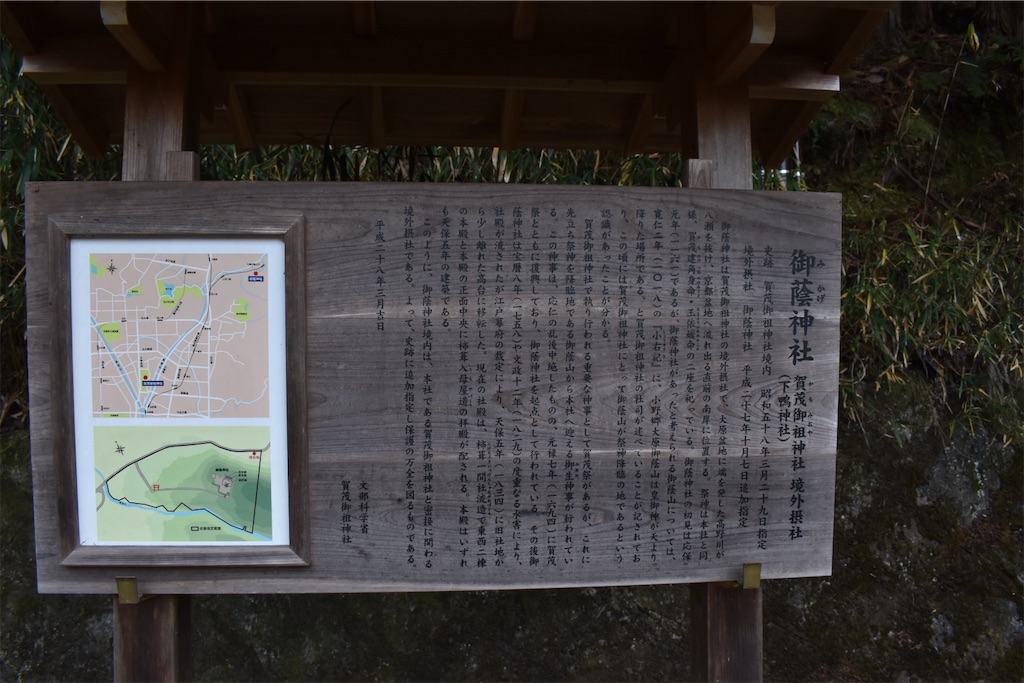 御蔭神社
みかげ
賀茂御祖神社 境外摂社
かもみおや
(下鴨神社)
史跡 賀茂御祖神社境内 昭和五十八年三月二十九日指定
境外摂社 御蔭神社 平成二十七年十月七日追加指定
御蔭神社は賀茂御祖神社の境外摂社で、大原盆地に端を発した高野川が
八瀬を抜け、京都盆地へ流れ出る直前の南岸に位置する。祭神は本社と同
様、賀茂建角身命・玉依媛命の二座を祀っている。御蔭神社の初見は応保
元年(一一六一)であるが、御蔭神社があったと考えられる御蔭山については、
寛仁二年(一〇一八)の『小右記』に、小野郷大原御蔭山は皇御神が天より
降りた場所である、と賀茂御祖神社の社司が述べていることが記されてお
り、この頃には賀茂御祖神社にとって御蔭山が祭神降臨の地であるという
認識があったことが分かる。
賀茂御祖神社で執り行われる重要な神事として賀茂祭があるが、これに
先立ち祭神を降臨地である御蔭山から本社へ迎える御生神事が行われてい
る。この神事は、応仁の乱後中絶したものの、元禄七年(一六九四)に賀茂
祭とともに復興しており、御蔭神社を起点として行われている。その後御
蔭神社は宝暦八年(一七五八)や文政十二年(一八二九)の度重なる水害により、
社殿が流されたが江戸幕府の裁定により、天保五年(一八三四)に旧社地か
ら少し離れた高台に移転した。現在の社殿は、杮葺一間社流造で東西二棟
の本殿と本殿の正面中央に杮葺入母屋造の拝殿が配される。本殿はいずれ
も天保五年の建築である。
このように、御蔭神社境内は、本社である賀茂御祖神社と密接に関わる
境外摂社である。よって、史跡に追加指定し保護の万全を図るものである。
平成二十八年三月吉日
文部科学省
賀茂御祖神社